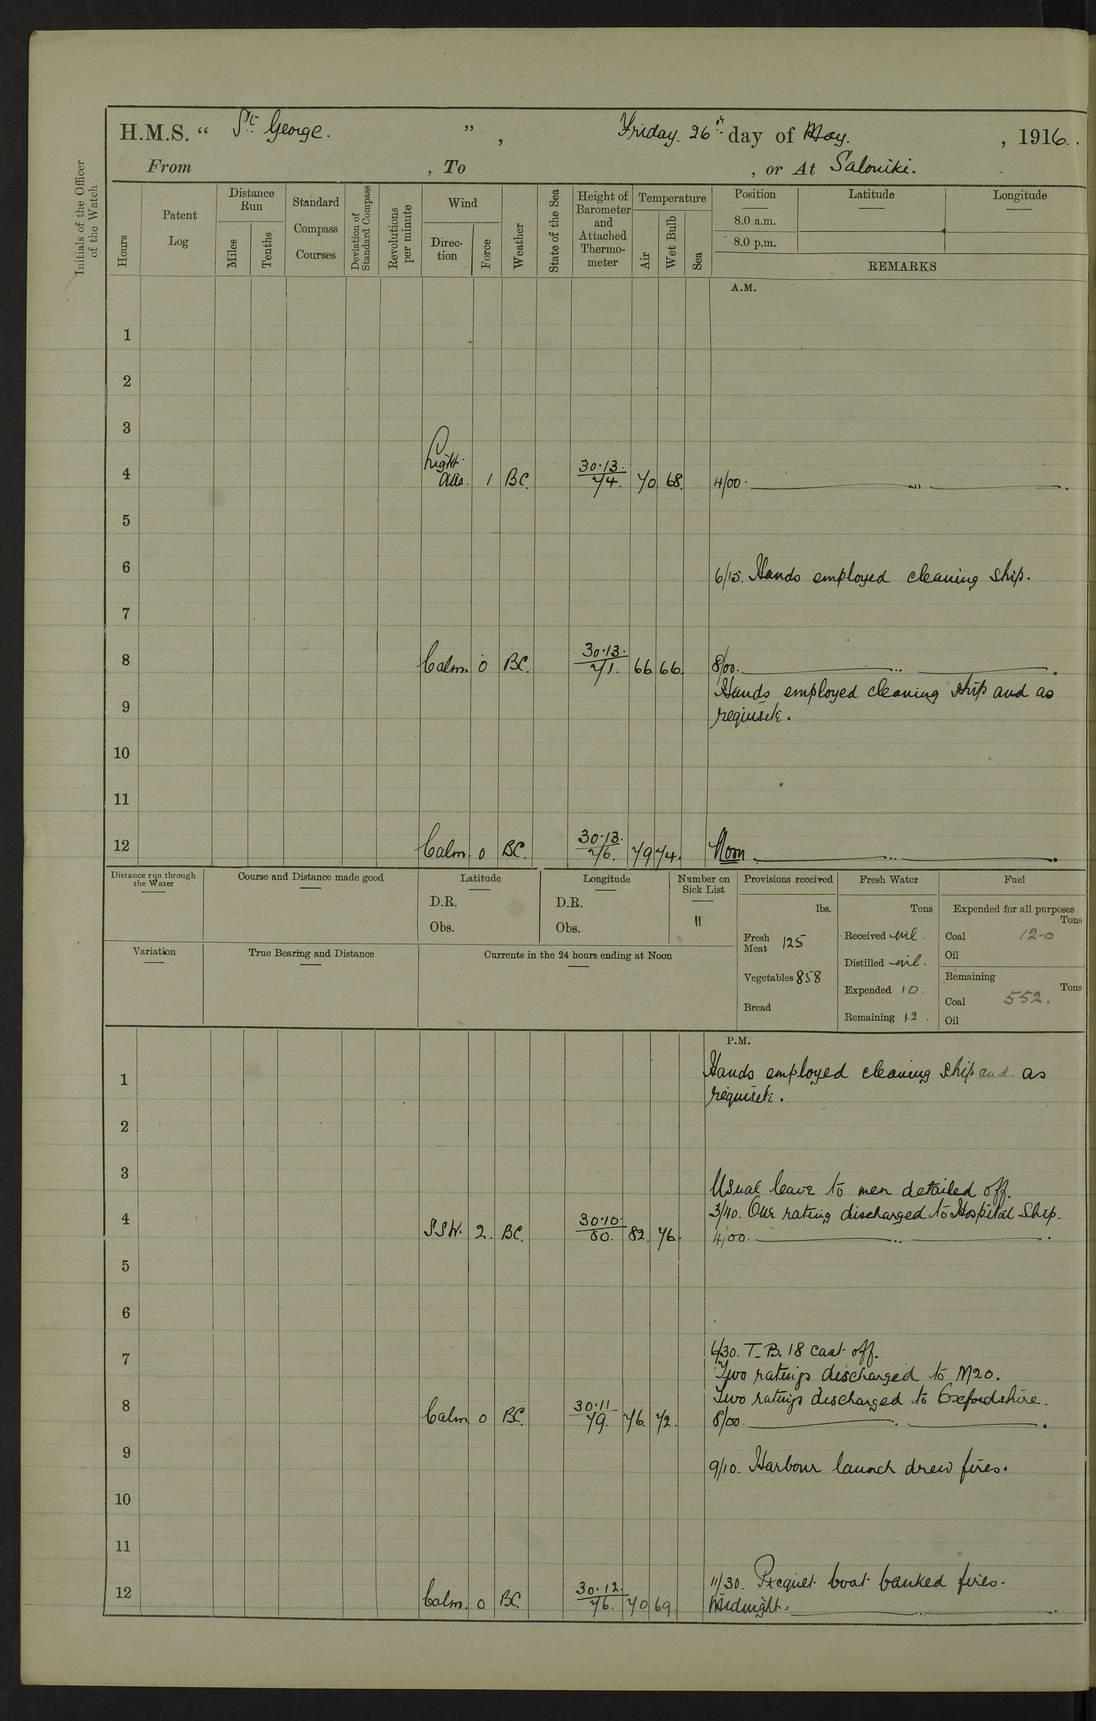 H.M.S. “ St. George. ” , Friday. 26th day of May. , 1916.
From , To , or At Saloniki.
Initials of the Officer of the Watch
Hours
Patent Log
Distance Run
Miles
Tenths
Standard Compass Courses
Deviation of Standard Compass
Revolutions per minute
Wind
Direction
Force
Weather
State of the Sea
Height of Barometer and Attached Thermometer
Temperature
Air
Wet Bulb
Sea
Position Latitude Longitude
8.0 a.m.
8.0 p.m.
REMARKS
A.M.
1
2
3
4 Light airs. 1 BC. 30.13. 74. 70 68. 4/00.
5
6 6/15. Hands employed cleaning ship.
7
8 Calm. 0 BC. 30.13. 71. 66 66. 8/00.
Hands employed cleaning ship and as
9 requisite.
10
11
12 Calm. 0 BC. 30.13. 76. 79 74. Noon
Distance run through the Water
Course and Distance made good
Latitude
D.R.
Obs.
Longitude
D.R.
Obs.
Number on Sick List
11
Provisions received
lbs.
Fresh Meat 125
Vegetables 858
Bread
Fresh Water
Tons
Received nil.
Distilled nil.
Expended 10.
Remaining 12.
Fuel
Expended for all purposes
Tons
Coal 12.0
Oil
Remaining
Tons
Coal 552.
Oil
Variation
True Bearing and Distance
Currents in the 24 hours ending at Noon
P.M.
1 Hands employed cleaning ship and as
requisite.
2
3
Usual leave to men detailed off.
3/40. One rating discharged to Hospital Ship.
4 SSW. 2. BC. 30.10. 80. 82. 76. 4/00.
5
6
7 6/30. T.B. 18 cast off.
Two ratings discharged to M20.
Two ratings discharged to Oxfordshire.
8 Calm 0 BC. 30.11. 79. 76 72. 8/00.
9 9/10. Harbour launch drew fires.
10
11
11/30. Picquet boat banked fires.
12 Calm. 0 BC. 30.12. 76. 70 69. Midnight.